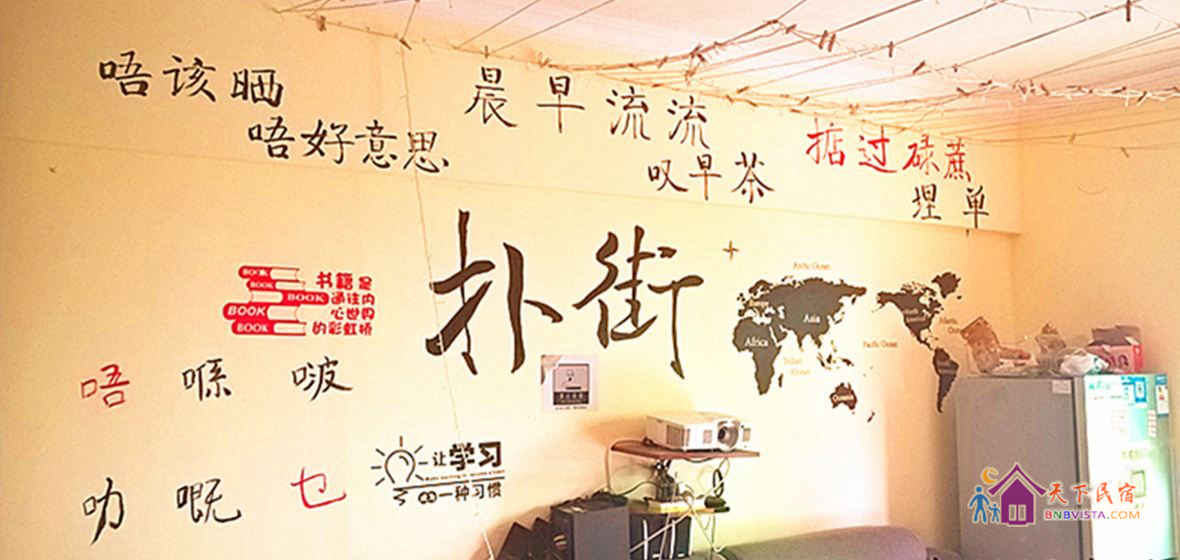 唔该晒
唔好意思
晨早流流
叹早茶
掂过碌蔗
埋单
扑街
BOOK
BOOK
BOOK
BOOK
BOOK
书籍是
通往内
心世界
的彩虹桥
Arctic Ocean
Europe
Asia
Africa
Pacific Ocean
Oceania
唔 喺 啵
叻 嘅 乜
让学习
成一种习惯
天下民宿
BNBVISTA.COM